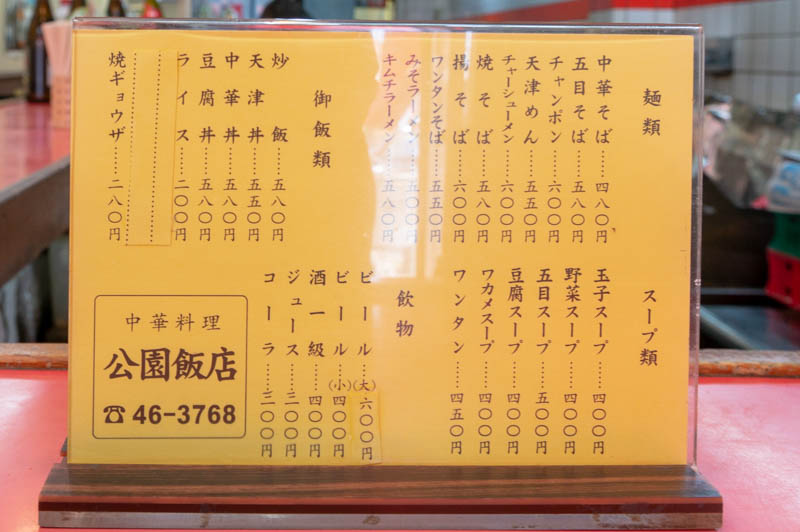 麺類
中華そば……四八〇円
五目そば……五八〇円
チャンポン……六〇〇円
天津めん……五五〇円
チャーシューメン……六〇〇円
焼そば……五八〇円
揚そば……六〇〇円
ワンタンそば……五五〇円
みそラーメン……五〇〇円
キムチラーメン……五八〇円
御飯類
炒飯……五八〇円
天津丼……五五〇円
中華丼……五八〇円
豆腐丼……五八〇円
ライス……二〇〇円
焼ギョウザ……二八〇円
スープ類
玉子スープ……四〇〇円
野菜スープ……四〇〇円
五目スープ……五〇〇円
豆腐スープ……四〇〇円
ワカメスープ……四〇〇円
ワンタン……四五〇円
飲物
ビール……(大)六〇〇円
ビール……(小)四〇〇円
酒一級……四〇〇円
ジュース……二〇〇円
コーラ……二〇〇円
中華料理
公園飯店
☎46-3768